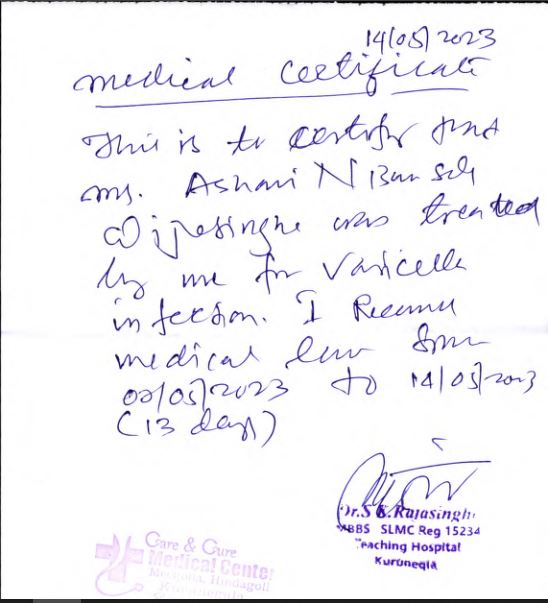 14/05/2023
medical certificate
This is to certify that
ms. Ashani N
Wijesinghe was treated
by me for Varicella
infection. I
medical from
02/05/2023 to 14/05/2023
(13 days)
Dr.S K.Rajasingh
MBBS SLMC Reg 15234
Teaching Hospital
Kurunegla
Care & Cure
Medical Center
Hindagoll
Kurunegala